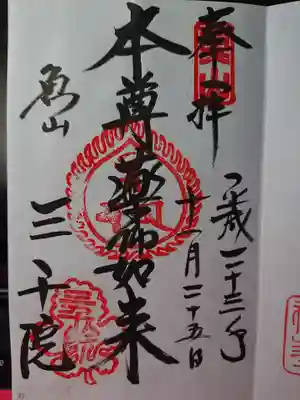 奉拝
平成二十三年
十一月二十五日
本尊薬師如来
魚山
三千院